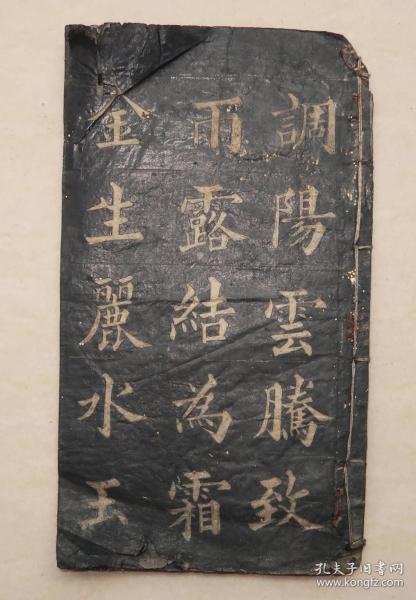 調陽雲騰致
雨露結為霜
金生麗水玉
孔夫子旧书网
www.kongfz.com